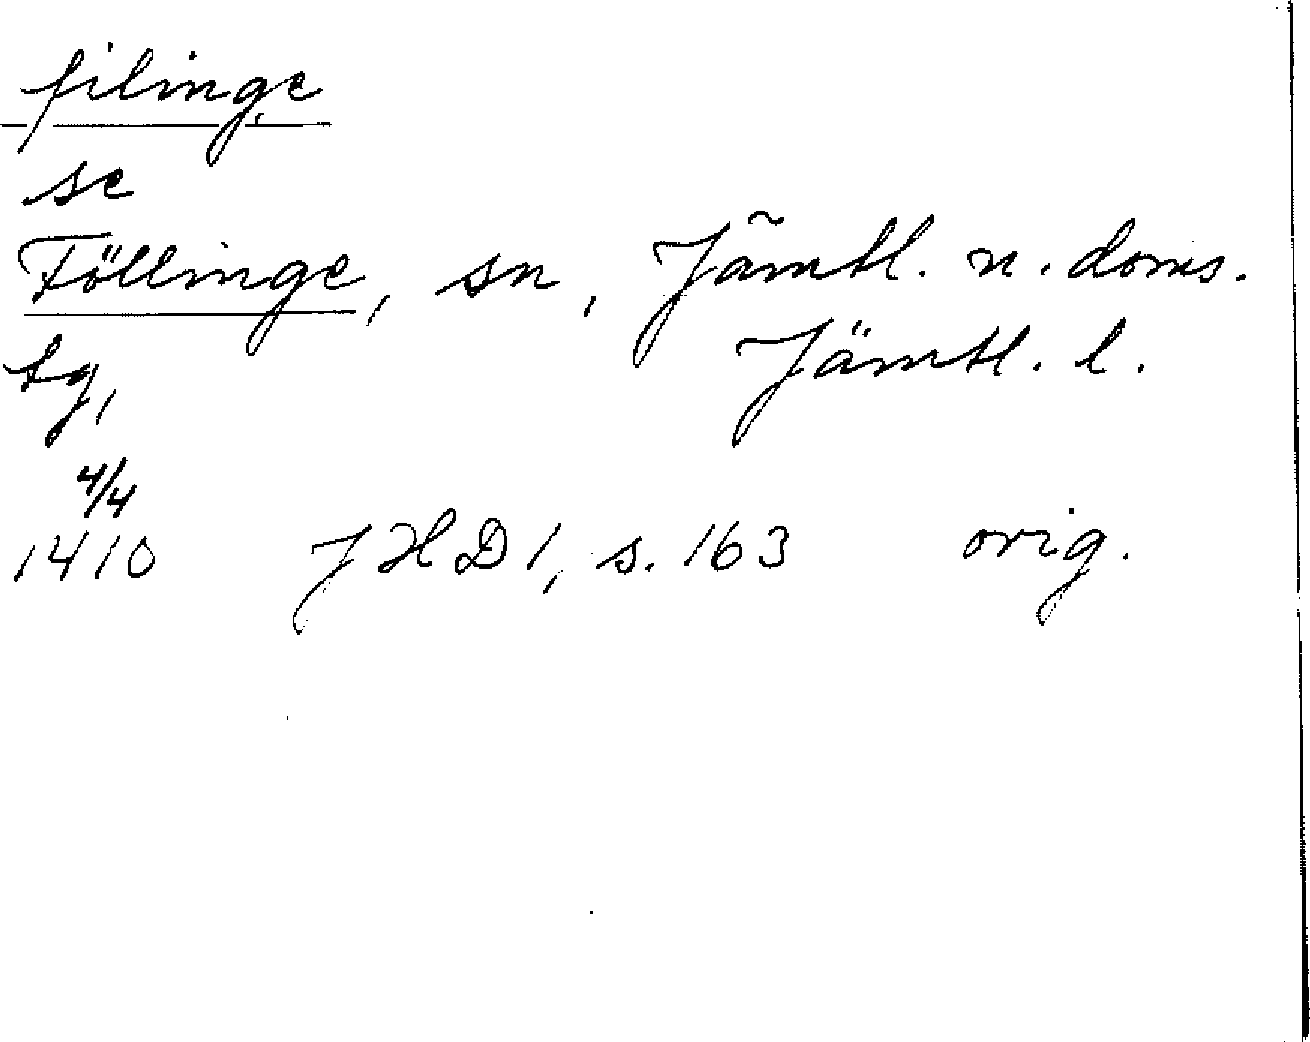 filinge
se
Föllinge, sn, Jämtl. n. doms.
tg, Jämtl. l.
4/4
1410 JHD 1, s. 163 orig.